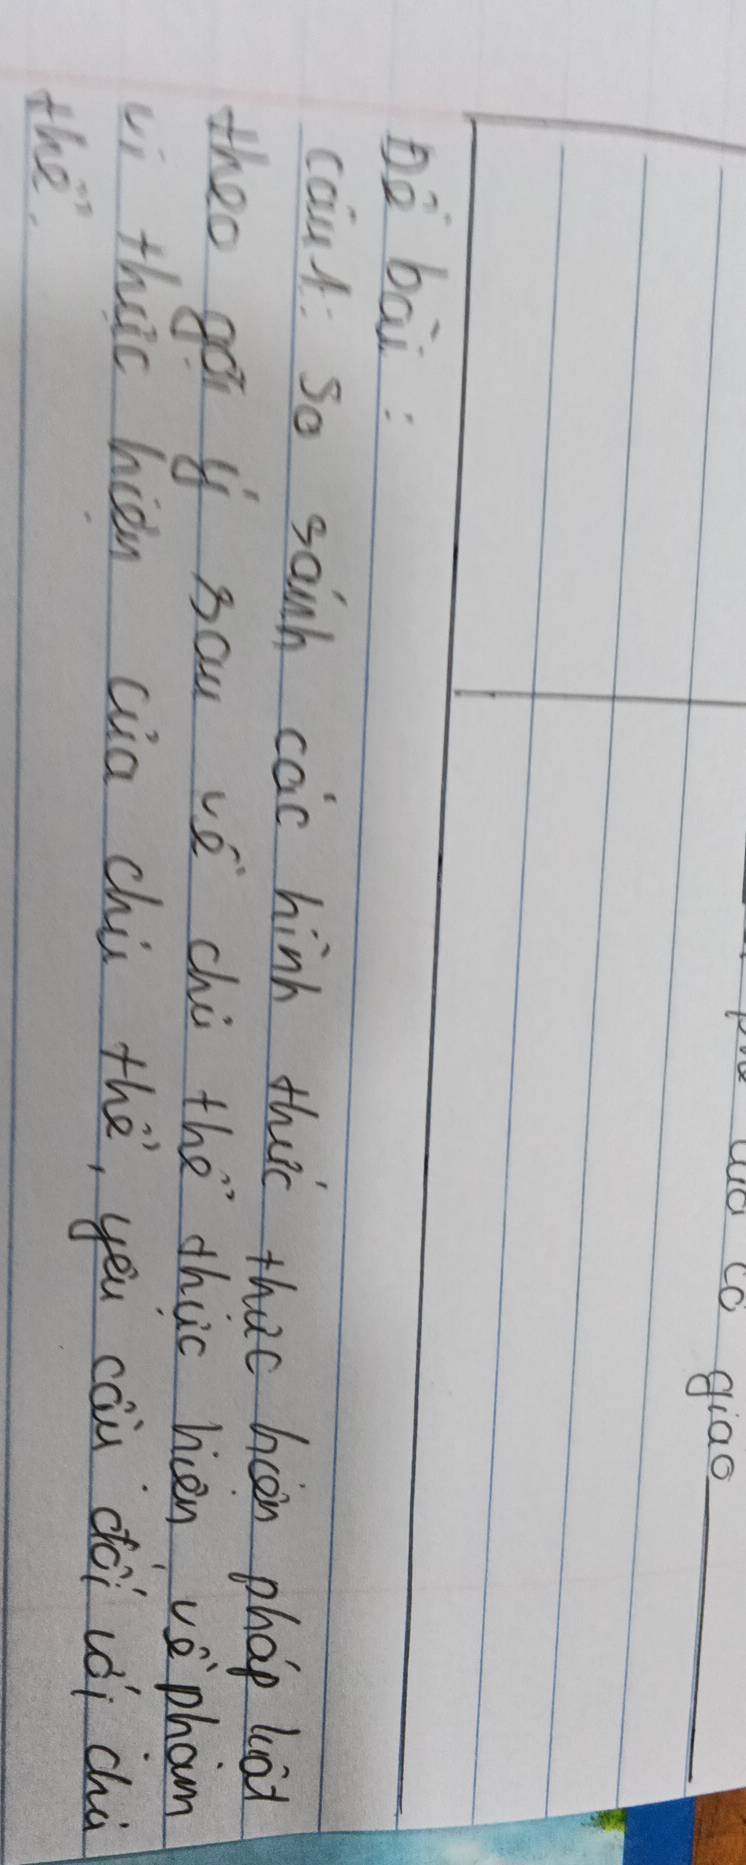 cô giao
Đề bài:
câu 1: So sánh các hình thức thực hiện pháp luật
theo gợi ý sau về chủ thể thực hiện về phạm
vi thực hiện của chủ thể, yêu cầu đối với chủ
thể.